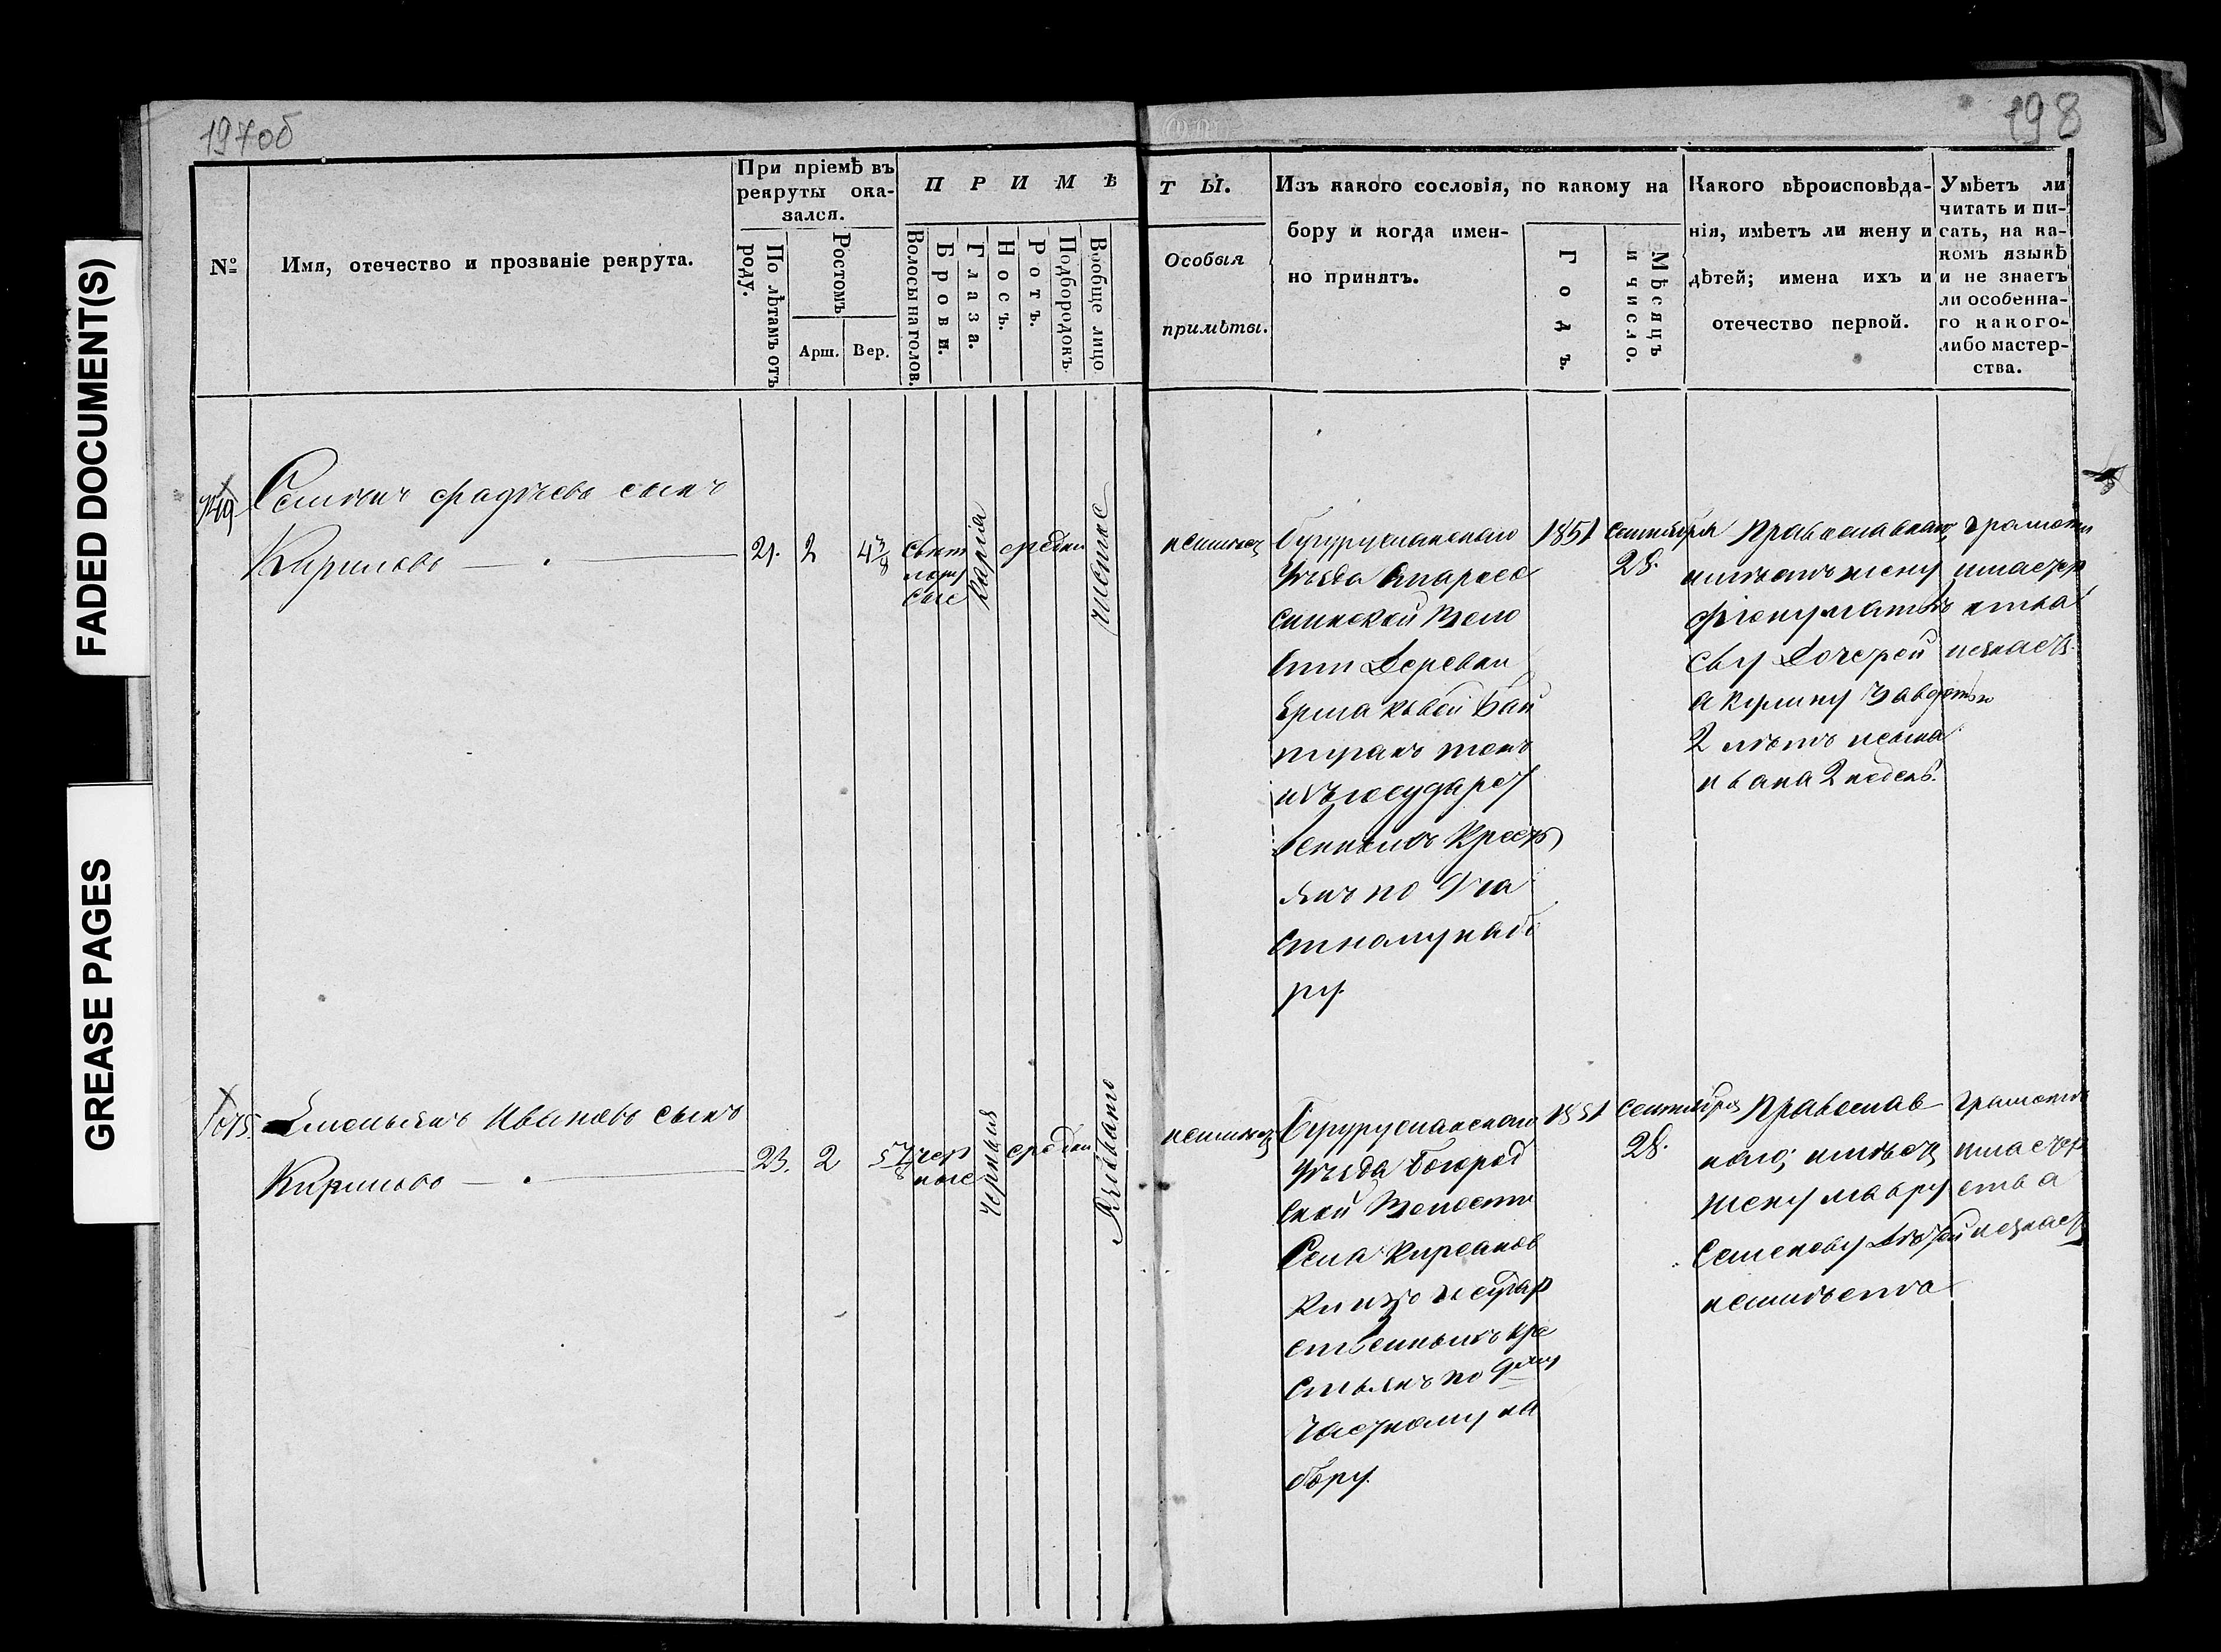 FADED DOCUMENT(S)
GREASE PAGES
197об
198
№
Имя, отечество и прозваніе рекрута.
При пріемѣ въ
рекруты ока-
зался.
По лѣтамъ отъ
роду.
Ростомъ
Арш.
Вер.
П Р И М Ѣ
Волосы на голов.
Брови.
Глаза.
Носъ.
Ротъ.
Подбородокъ.
Вообще лицо.
Т Ы.
Особыя
примѣты.
Изъ какого сословія, по какому на
бору и когда имен-
но принятъ.
Годъ.
Мѣсяцъ
и число.
Какого вѣроисповѣда-
нія, имѣетъ ли жену и
дѣтей; имена ихъ и
отечество первой.
Умѣетъ ли
читать и пи-
сать, на ка-
комъ языкѣ
и не знаетъ
ли особенна-
го какого-
либо мастер-
ства.
Фадѣевъ сынъ
Кириловъ
21.
2
4 3/8
свѣт
лору
сые
Карія
средни
чистое
неимѣетъ
Бугурусланскаго
Уѣзда
волo
сти Деревни
изъ государст
венныхъ Кресть
янъ по 9 ча
стному наб
ру.
1851
Сентября
28.
Православнаго
имѣетъ жену
Дочерей
Акулину
2 лѣтъ исына
ивана 2 недель.
грамоты
имастер
ства
незнаетъ
Емельянъ Ивановъ сынъ
Кириловъ
23.
2
5 7/8
чер
ные
Черныя
средни
неимѣетъ
Бугурусланскаго
Уѣзда Богород
ской Волости
Села Кирсанов
ки изъ государ
ственныхъ кре
стьянъ по 9му
частному на
бору.
1851
Сентября
28.
Православ
наго, имѣетъ
жену мавру
Семенову Дѣтей
неимѣетъ
грамоты
имастер
ства
незнаетъ